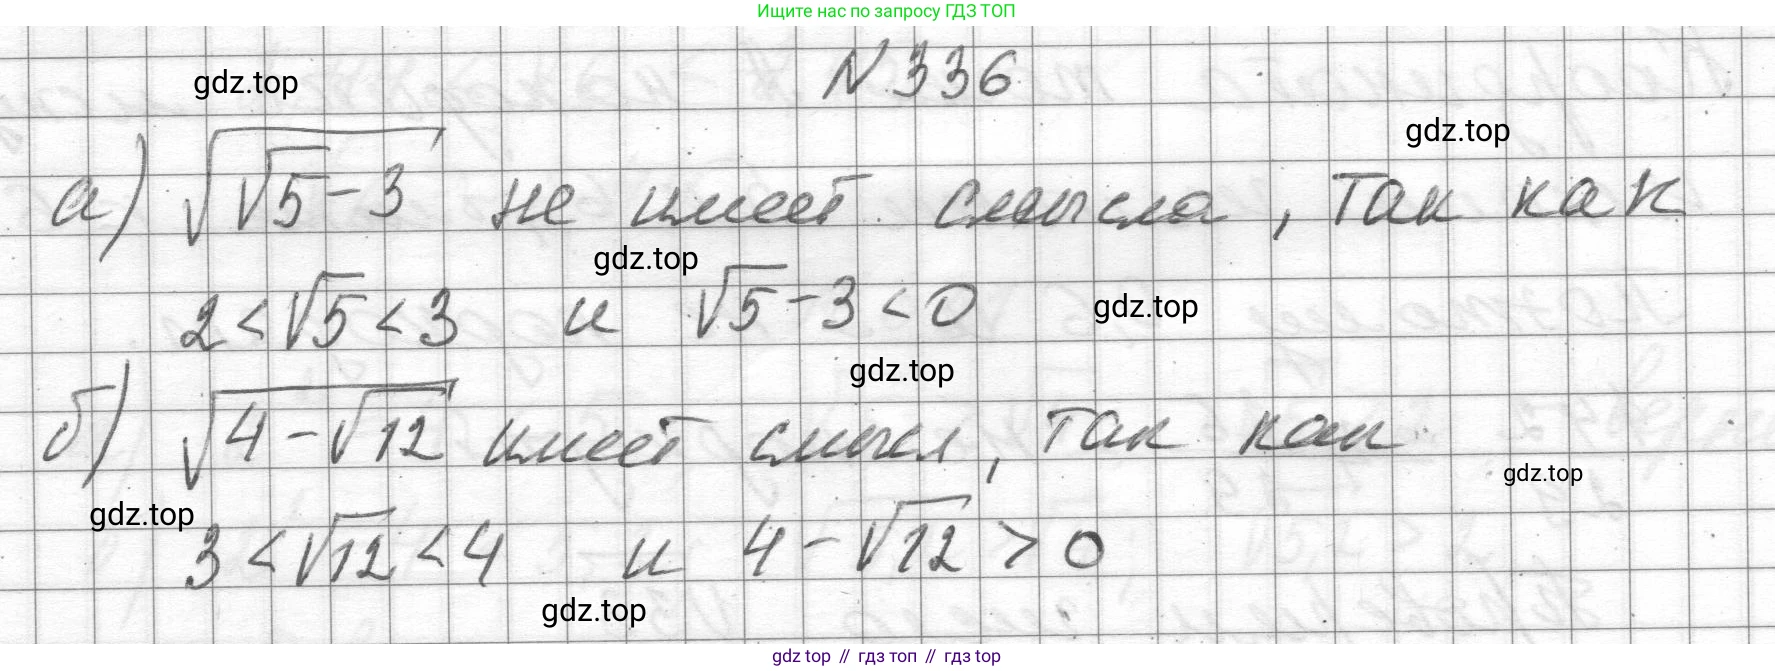 Ищите нас по запросу ГДЗ ТОП
N 336
gdz.top
gdz.top
а) √(√5 - 3) не имеет смысла, так как
gdz.top
2 < √5 < 3 и √5 - 3 < 0
gdz.top
gdz.top
б) √(4 - √12) имеет смысл, так как
gdz.top
gdz.top
3 < √12 < 4 и 4 - √12 > 0
gdz.top
gdz top // гдз топ // гдз top